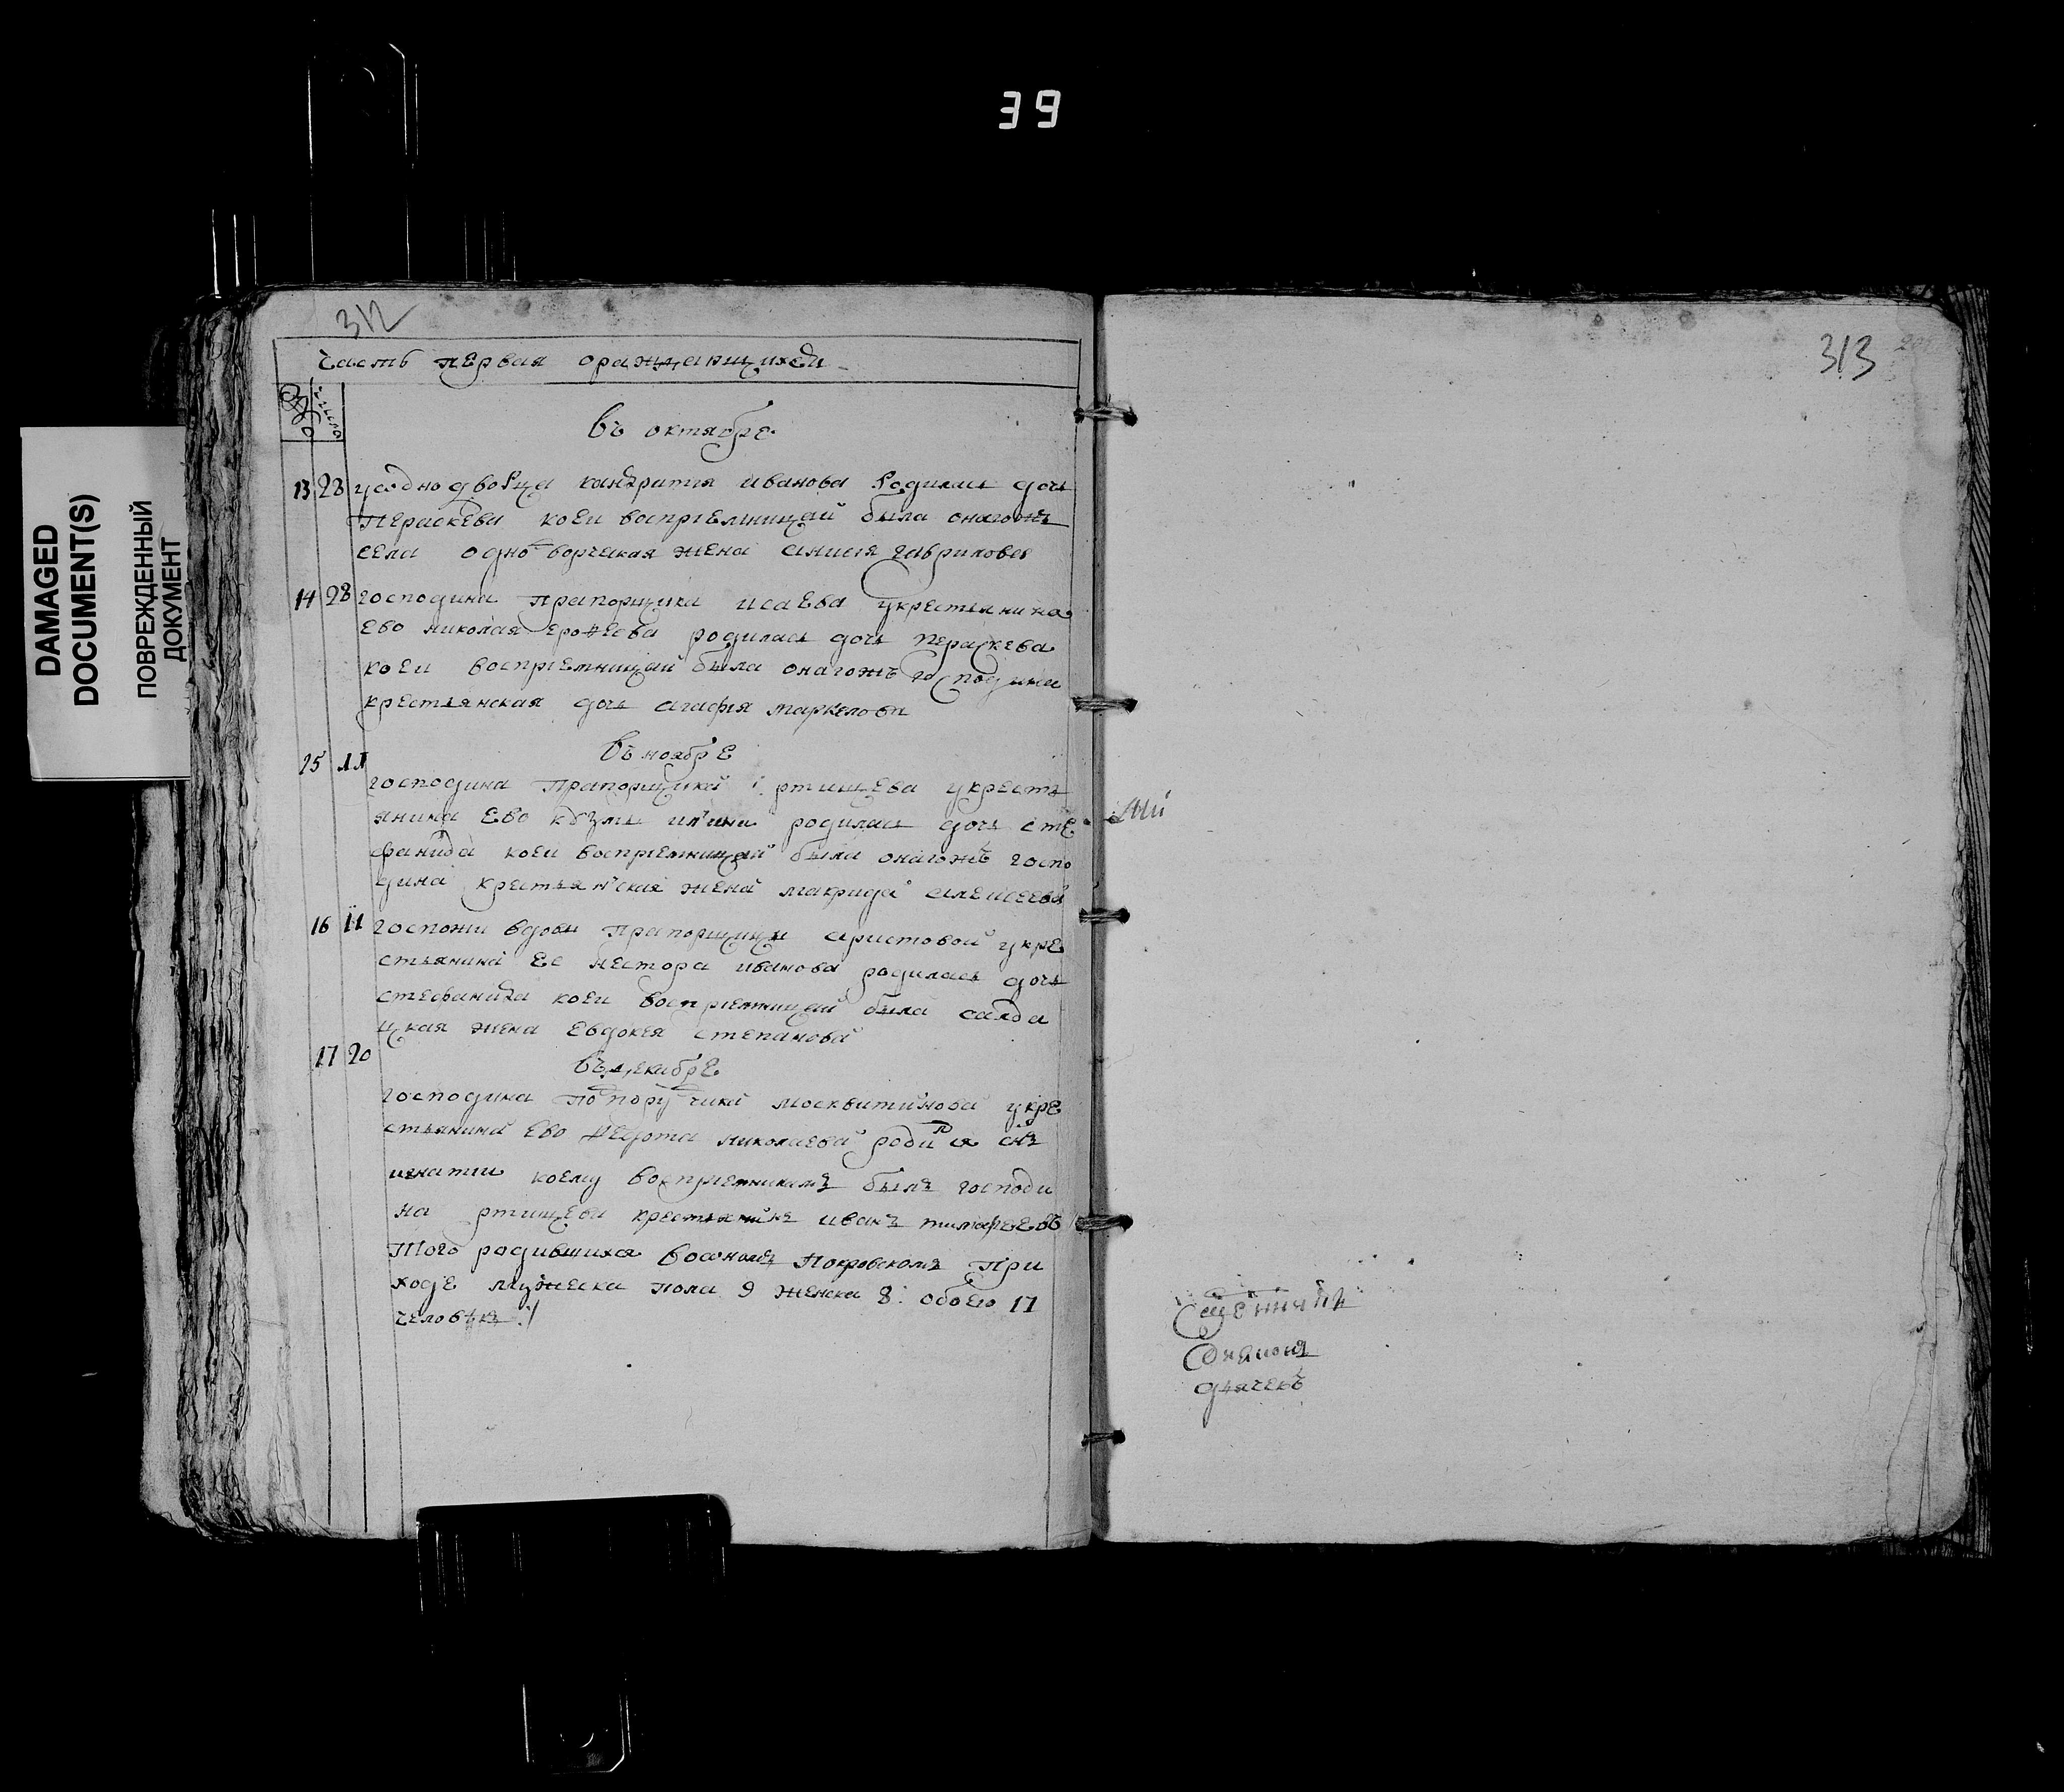 39
DAMAGED
DOCUMENT(S)
ПОВРЕЖДЕННЫЙ
ДОКУМЕНТ
312
часть первая ораждающихся
въ октябре
13 28 уоднодворца кандратия иванова родилась дочь
Пераскева коеи восприемницаи была онагожъ
села одноворческая жена анисия гаврилова
14 28 господина прапорщика исаева укрестьянина
ево николая ерофеева родилась дочь пераскева
коеи восприемницаи была онагожъ господина
крестьянская дочь агафия маркелова
въ ноябре
15 11
господина прапорщика ртищева укресть
янина ево кузмы ильина родилась дочь сте
фанида коеи восприемницаи была онагожъ госпо
дина крестьянская жена макрида алексеева
16 11 госпожи вдовы прапорщицы аристовой укре
стьянина ее нестора иванова родилась дочь
стефанида коеи восприемницаи была салда
цкая жена евдокея степанова
17 20
въ декабре
господина подпоручика москвитинова укре
стьянина ево федота николаева родился снъ
игнатии коему восприемникомъ былъ господи
на ртищева крестьянинъ иванъ тимофеевъ
Того родившихся воономъ Покровскомъ при
ходе мужеска пола 9 женска 8: обоего 17
человѣкъ :/
313
Сщенникъ
дьячекъ